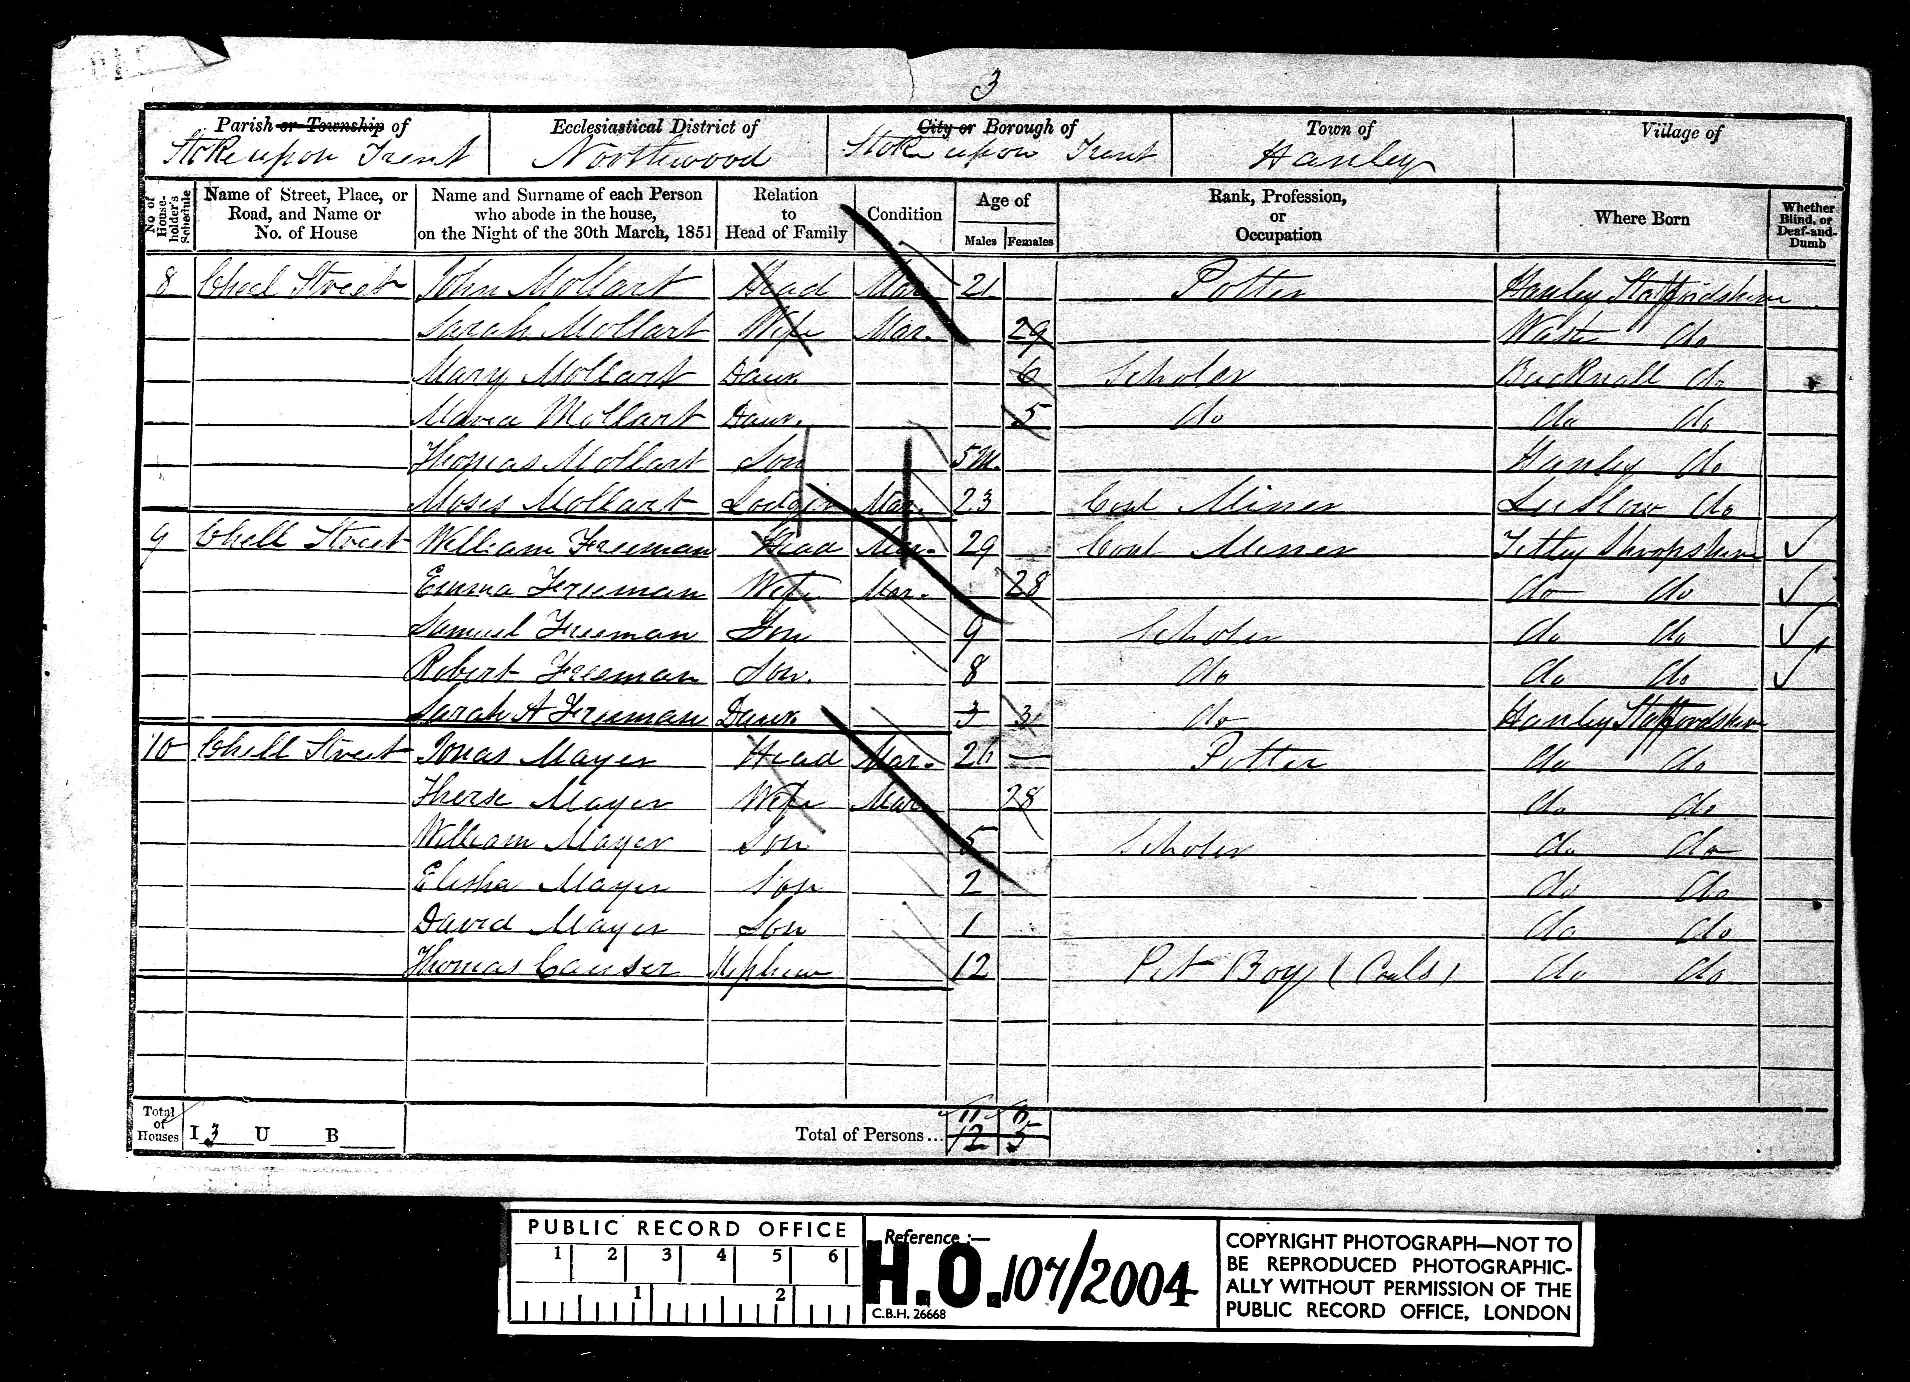 3
Parish or Township of Ecclesiastical District of City or Borough of Town of Village of
Stoke upon Trent Northwood Stoke upon Trent Hanley
No. of House-holder's Schedule Name of Street, Place, or Road, and Name or No. of House Name and Surname of each Person who abode in the house, on the Night of the 30th March, 1851 Relation to Head of Family Condition Age of Males Females Rank, Profession, or Occupation Where Born Whether Blind, or Deaf-and-Dumb
8 Chell Street John Mollart Head Mar. 21 Potter Hanley Staffordshire
Sarah Mollart Wife Mar. 29 do
Mary Mollart Daur. 6 Scholer Bucknall do
Maria Mollart Daur. 5 do do do
Thomas Mollart Son 5 M. Hanley do
Moses Mollart Lodger Mar. 23 Coal Miner do
9 Chell Street William Freeman Head Mar. 29 Coal Miner Shropshire
Emma Freeman Wife Mar. 28 do do
Samuel Freeman Son 9 Scholer do do
Robert Freeman Son. 8 do do do
Sarah A Freeman Daur. 3 3 do Hanley Staffordshire
10 Chell Street Jonas Mayer Head Mar. 26 Potter do do
Wife Mar 28 do do
William Mayer Son 5 Scholer do do
Elisha Mayer Son 2 do do
David Mayer Son 1 do do
Thomas Causer Nephew 12 Pit Boy (Coals) do do
Total of Houses I 3 U B Total of Persons... 11 6
12 5
PUBLIC RECORD OFFICE
1 2 3 4 5 6
1 2
Reference :—
H.O. 107/2004
C.B.H. 26668
COPYRIGHT PHOTOGRAPH—NOT TO
BE REPRODUCED PHOTOGRAPHIC-
ALLY WITHOUT PERMISSION OF THE
PUBLIC RECORD OFFICE, LONDON